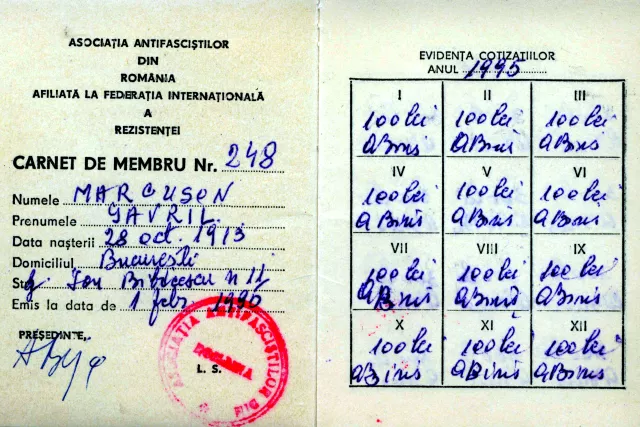 ASOCIAȚIA ANTIFASCIȘTILOR
DIN
ROMÂNIA
AFILIATĂ LA FEDERAȚIA INTERNAȚIONALĂ
A
REZISTENȚEI
CARNET DE MEMBRU Nr. 248
Numele MARCUSON
Prenumele GAVRIL
Data nașterii 28 oct. 1913
Domiciliul București
Str. Ion n 11
Emis la data de 1 febr 1990
PREȘEDINTE,
L. S.
ASOCIAȚIA ANTIFASCIȘTILOR
EVIDENȚA COTIZAȚIILOR
ANUL 1995
I II III
100 lei 100 lei 100 lei
IV V VI
100 lei 100 lei 100 lei
VII VIII IX
100 lei 100 lei 100 lei
X XI XII
100 lei 100 lei 100 lei